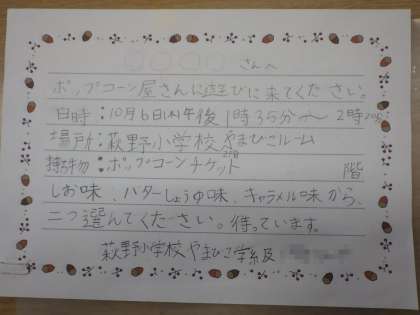 さんへ
ポップコーン屋さんに遊びに来てください。
日時:10月6日(木)午後1時35分〜2時20分
場所:萩野小学校やまびこルーム
持ち物:ポップコーンチケット 2階
しお味、バターしょうゆ味、キャラメル味から、
二つ選んでください。待っています。
萩野小学校やまびこ学級